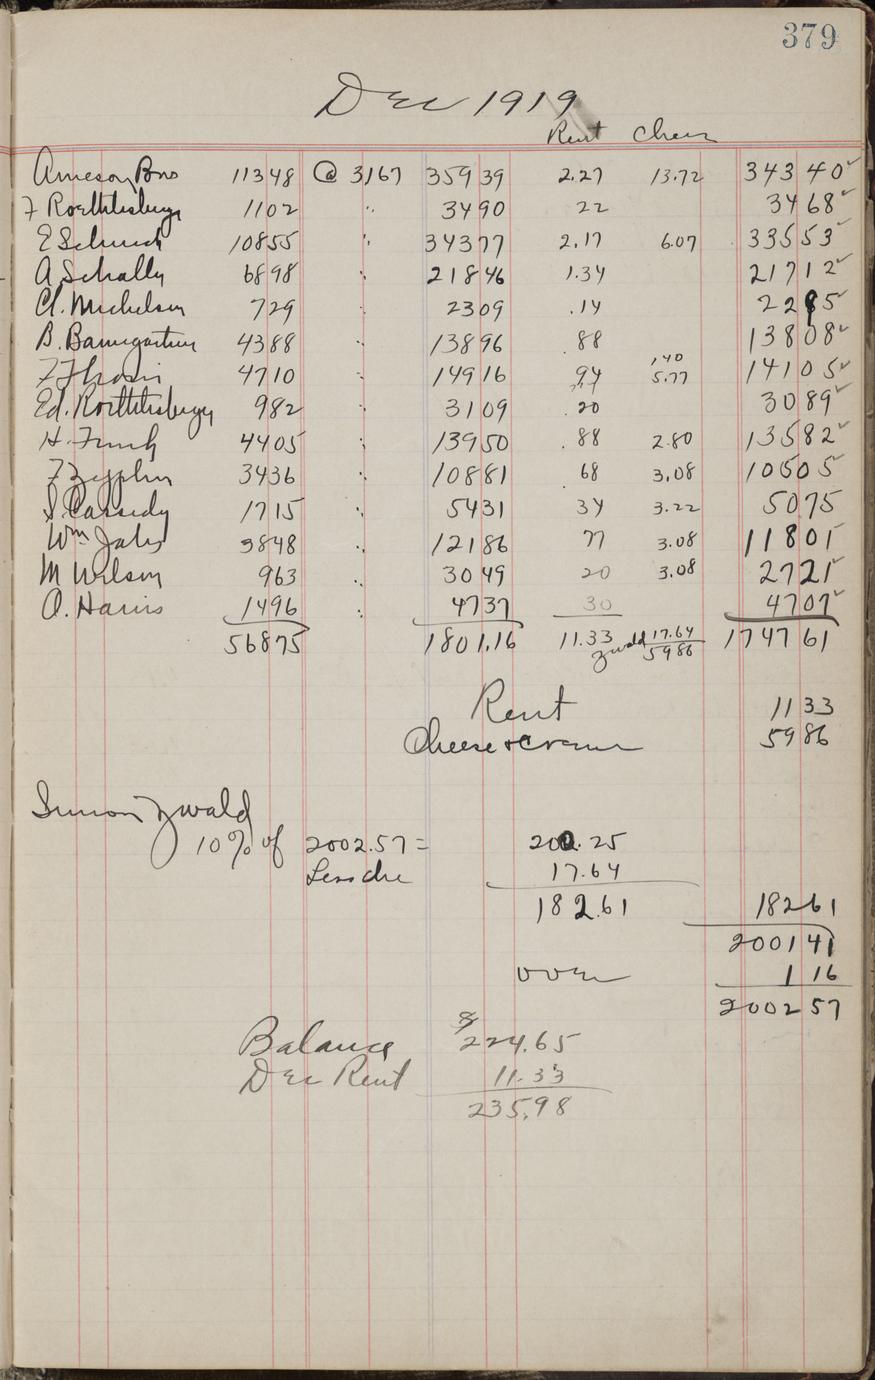 379
Dec 1919
Rent Chees
Arneson Bros 11348 @ 3167 359 39 2.27 13.72 343 40 ✓
F Roethlisberger 1102 " 34 90 22 34 68 ✓
E Schuch 10855 " 343 77 2.17 6.07 335 53 ✓
A Schally 6898 " 218 46 1.34 217 12 ✓
Cl. Michelson 729 " 23 09 .14 22 95 ✓
B. Baumgartner 4388 " 138 96 .88 138 08 ✓
1.40
4710 " 149 16 94 5.77 141 05 ✓
Ed. Roethlisberger 982 " 31 09 .20 30 89 ✓
H. Funk 4405 " 139 50 .88 2.80 135 82 ✓
F Zypher 3436 " 108 81 68 3.08 105 05 ✓
S. Cassedy 1715 " 54 31 34 3.22 50 75
Wm Jahs 3848 " 121 86 77 3.08 118 01 ✓
M Wilson 963 " 30 49 20 3.08 27 21 ✓
O. Harris 1496 " 47 37 30 47 07 ✓
56875 1801.16 11.33 Zwald 17.64 1747 61
59 86
Rent 11 33
Cheese & cream 59 86
Simon Zwald
10% of 2002.57 = 200.25
Less che 17.64
182.61 182 61
2001 41
over 1 16
2002 57
Balance 8 224.65
Dec Rent 11.33
235.98